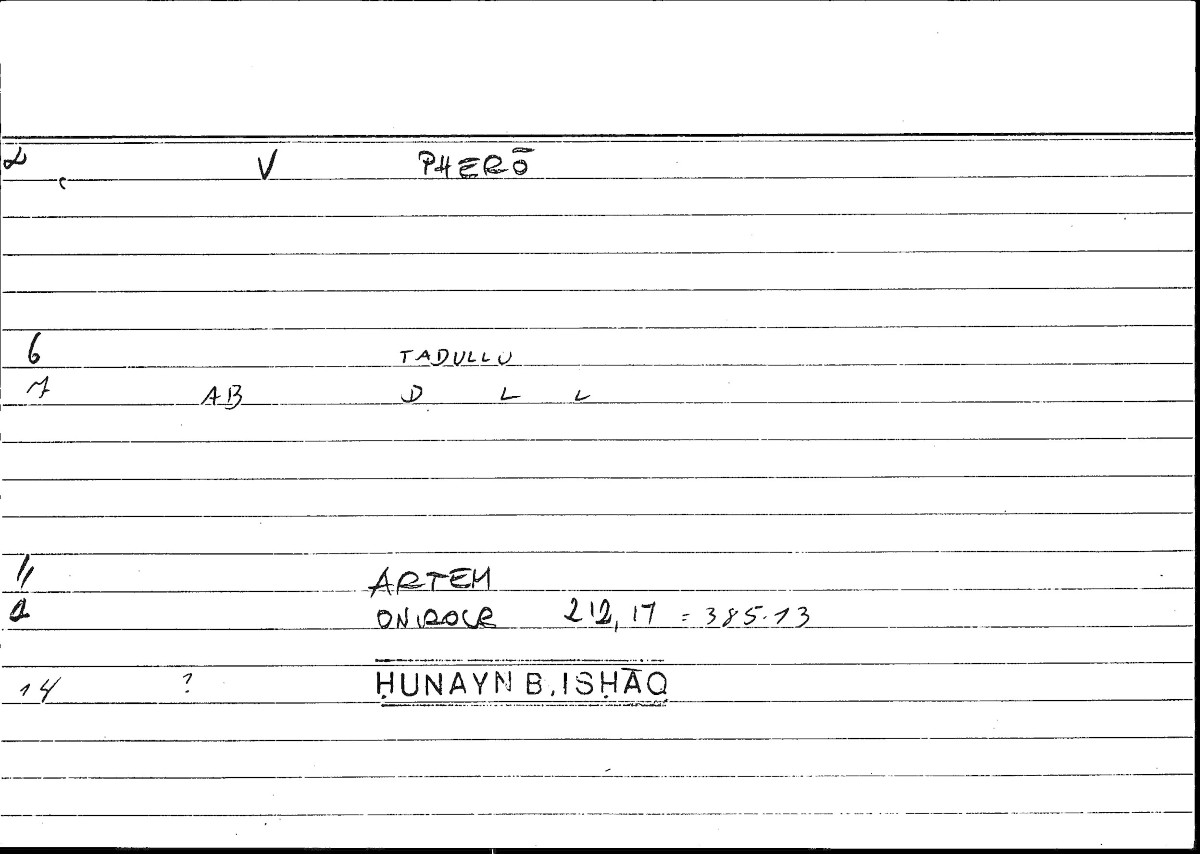 V PHERŌ
6 TADULLU
7 AB D L L
11 ARTEM
2 ONIROCR 212,17 = 385.13
14 ? ḤUNAYN B. ISḤĀQ